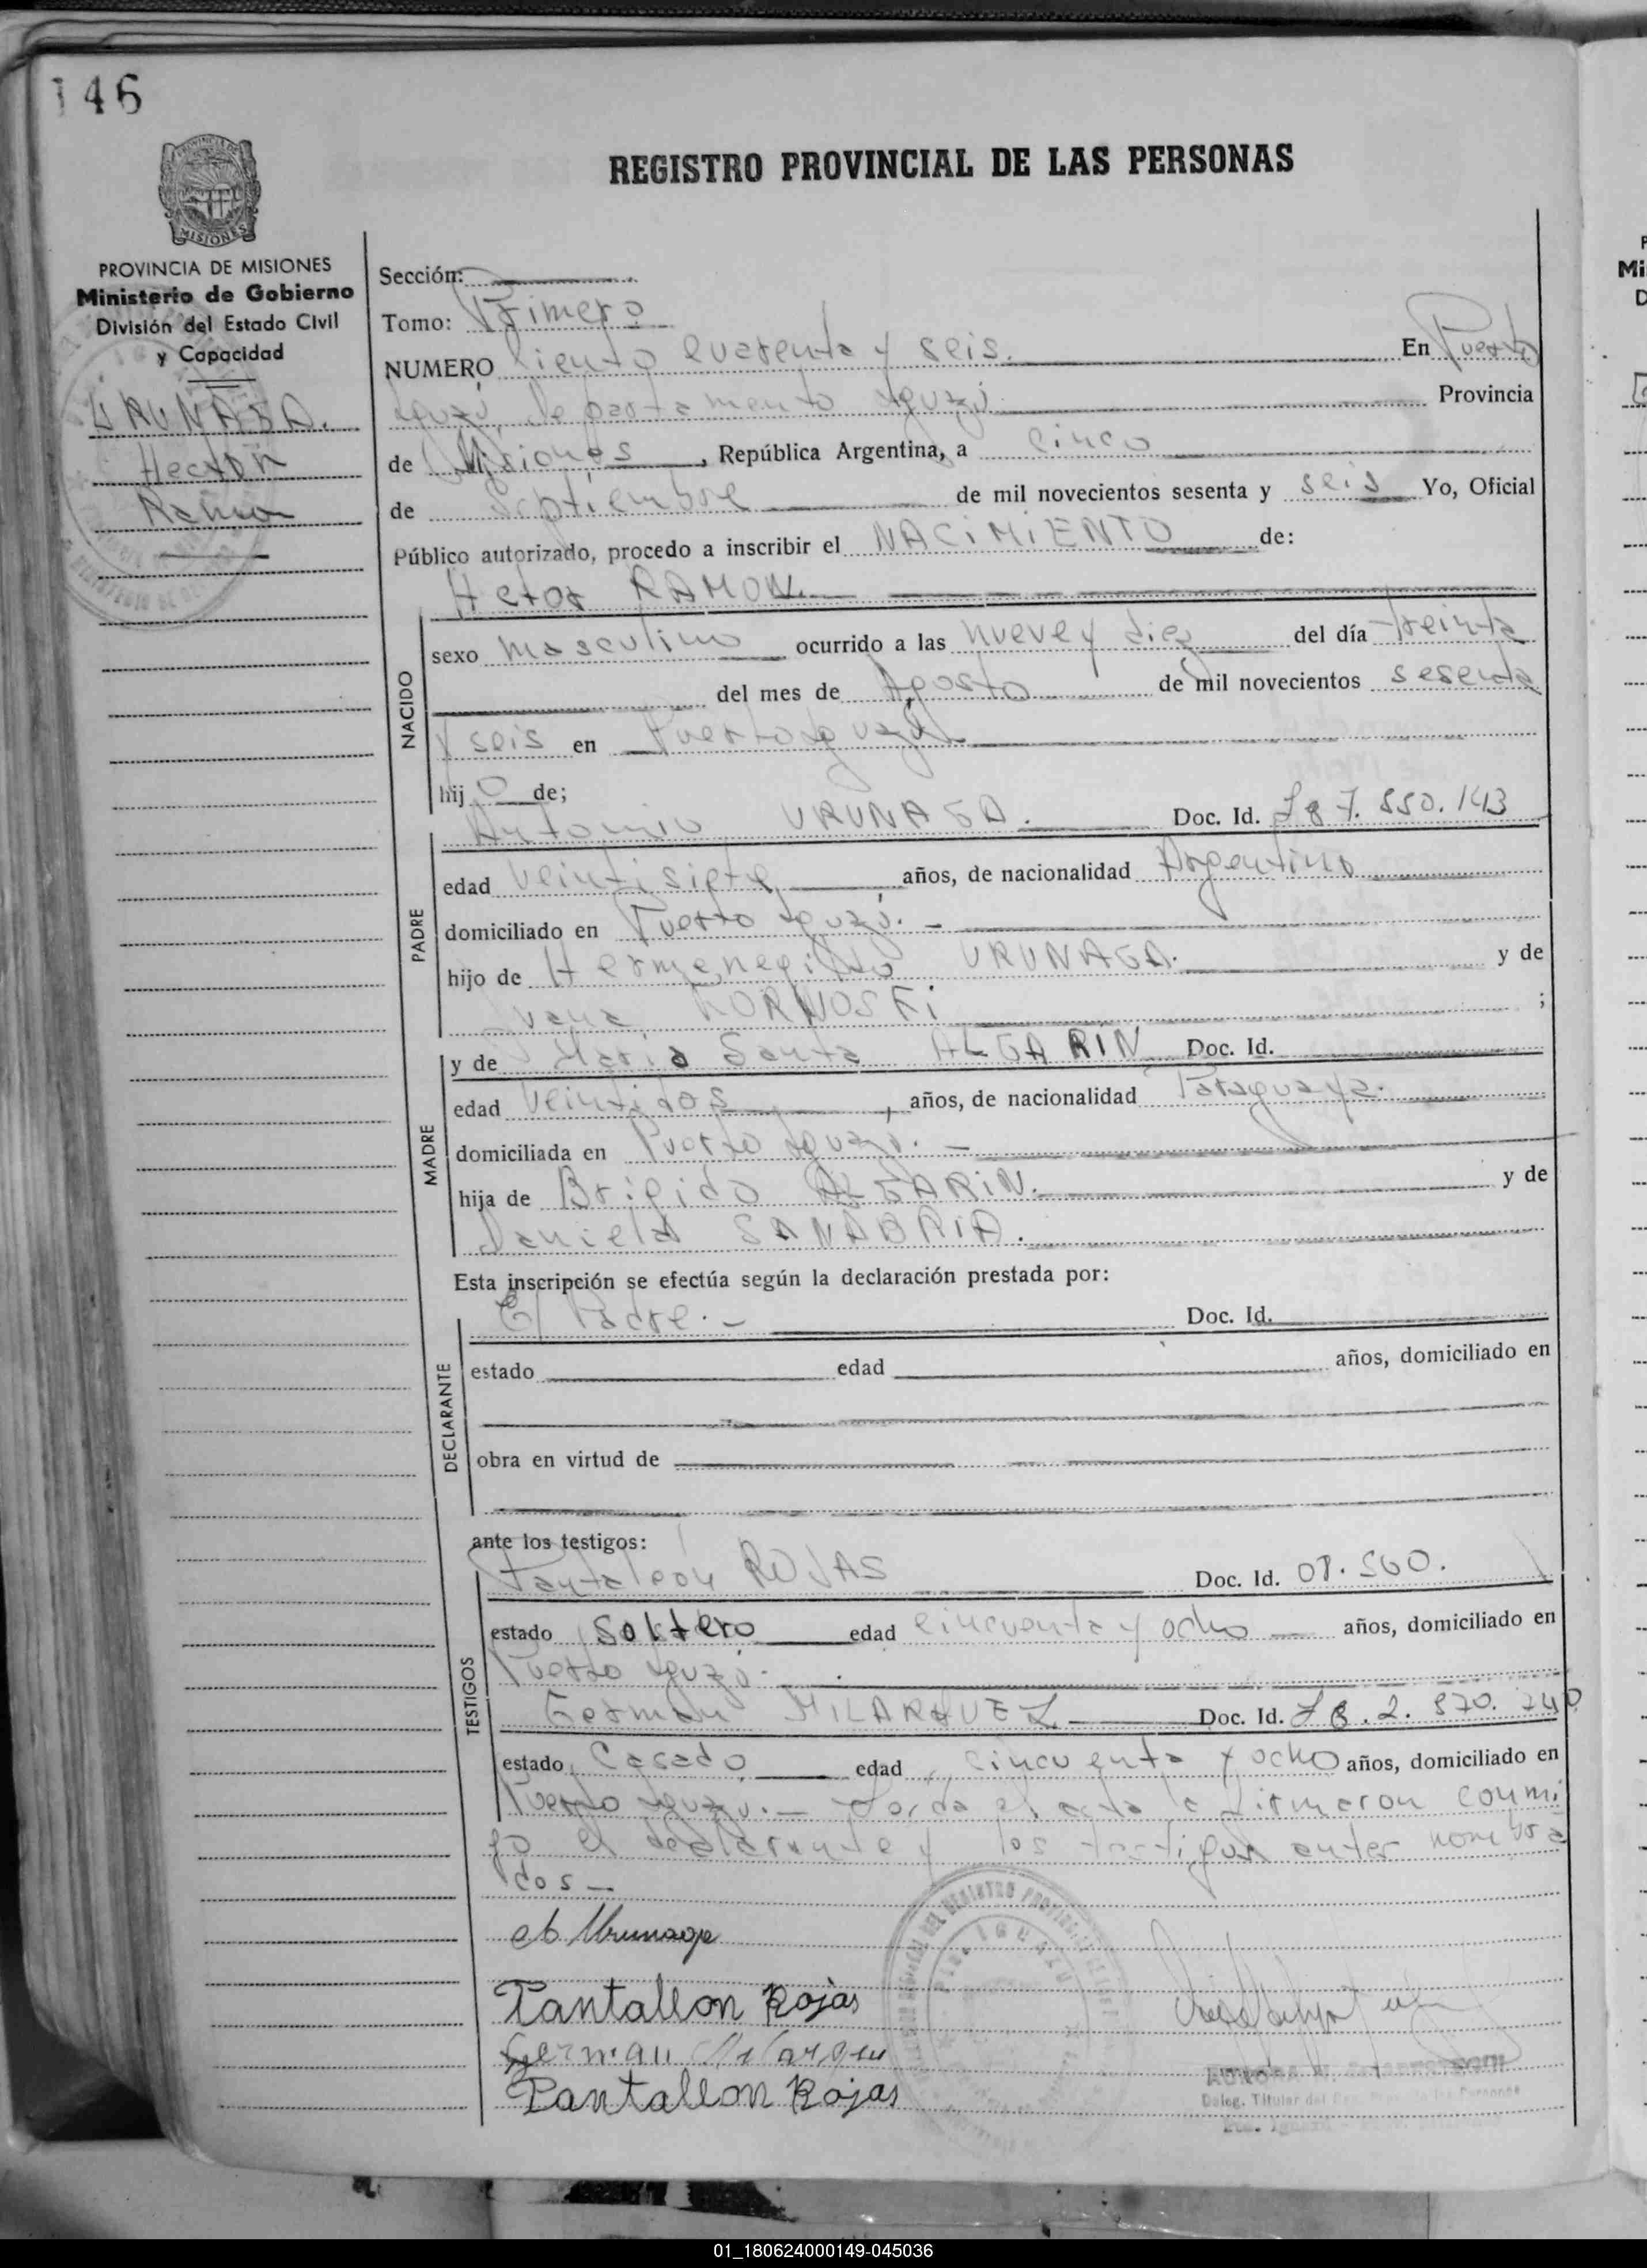 146
REGISTRO PROVINCIAL DE LAS PERSONAS
PROVINCIA DE MISIONES
Ministerio de Gobierno
División del Estado Civil
y Capacidad
URUNAGA.
Hector
Ramon
Sección:
Tomo: Primero
NUMERO Ciento cuarenta y seis. En Puerto
Iguazú, departamento Iguazú Provincia
de Misiones, República Argentina, a cinco
de Septiembre de mil novecientos sesenta y seis Yo, Oficial
Público autorizado, procedo a inscribir el NACIMIENTO de:
Hetor RAMON.
NACIDO
sexo masculino ocurrido a las nueve y diez del día treinta
del mes de Agosto de mil novecientos sesenta
y seis en Puerto Iguazú
hijo de;
PADRE
Antonio URUNAGA. Doc. Id. 7.550.143
edad veintisiete, años, de nacionalidad Argentino
domiciliado en Puerto Iguazú. -
hijo de Hermenegildo URUNAGA. y de
Juana KORNOSKI ;
MADRE
y de Maria Santa ALGARIN Doc. Id.
edad veintidos, años, de nacionalidad Paraguaya.
domiciliada en Puerto Iguazú. -
hija de Brigido ALGARIN. y de
Daniela SANABRIA.
Esta inscripción se efectúa según la declaración prestada por:
DECLARANTE
El Padre. - Doc. Id.
estado edad años, domiciliado en
obra en virtud de
ante los testigos:
TESTIGOS
Pantaleón ROJAS Doc. Id. 08.560.
estado Soltero edad cincuenta y ocho años, domiciliado en
Puerto Iguazú.
German MILARQUEZ Doc. Id. 2.870.740
estado Casado edad cincuenta y ocho años, domiciliado en
Puerto Iguazú. - Leida el acta la firmaron conmi
go el declarante y los testigos antes nombra
dos -
A Urunaga
Pantalleon Rojas
German
Pantalleon Rojas
Deleg. Titular del
01_180624000149-045036